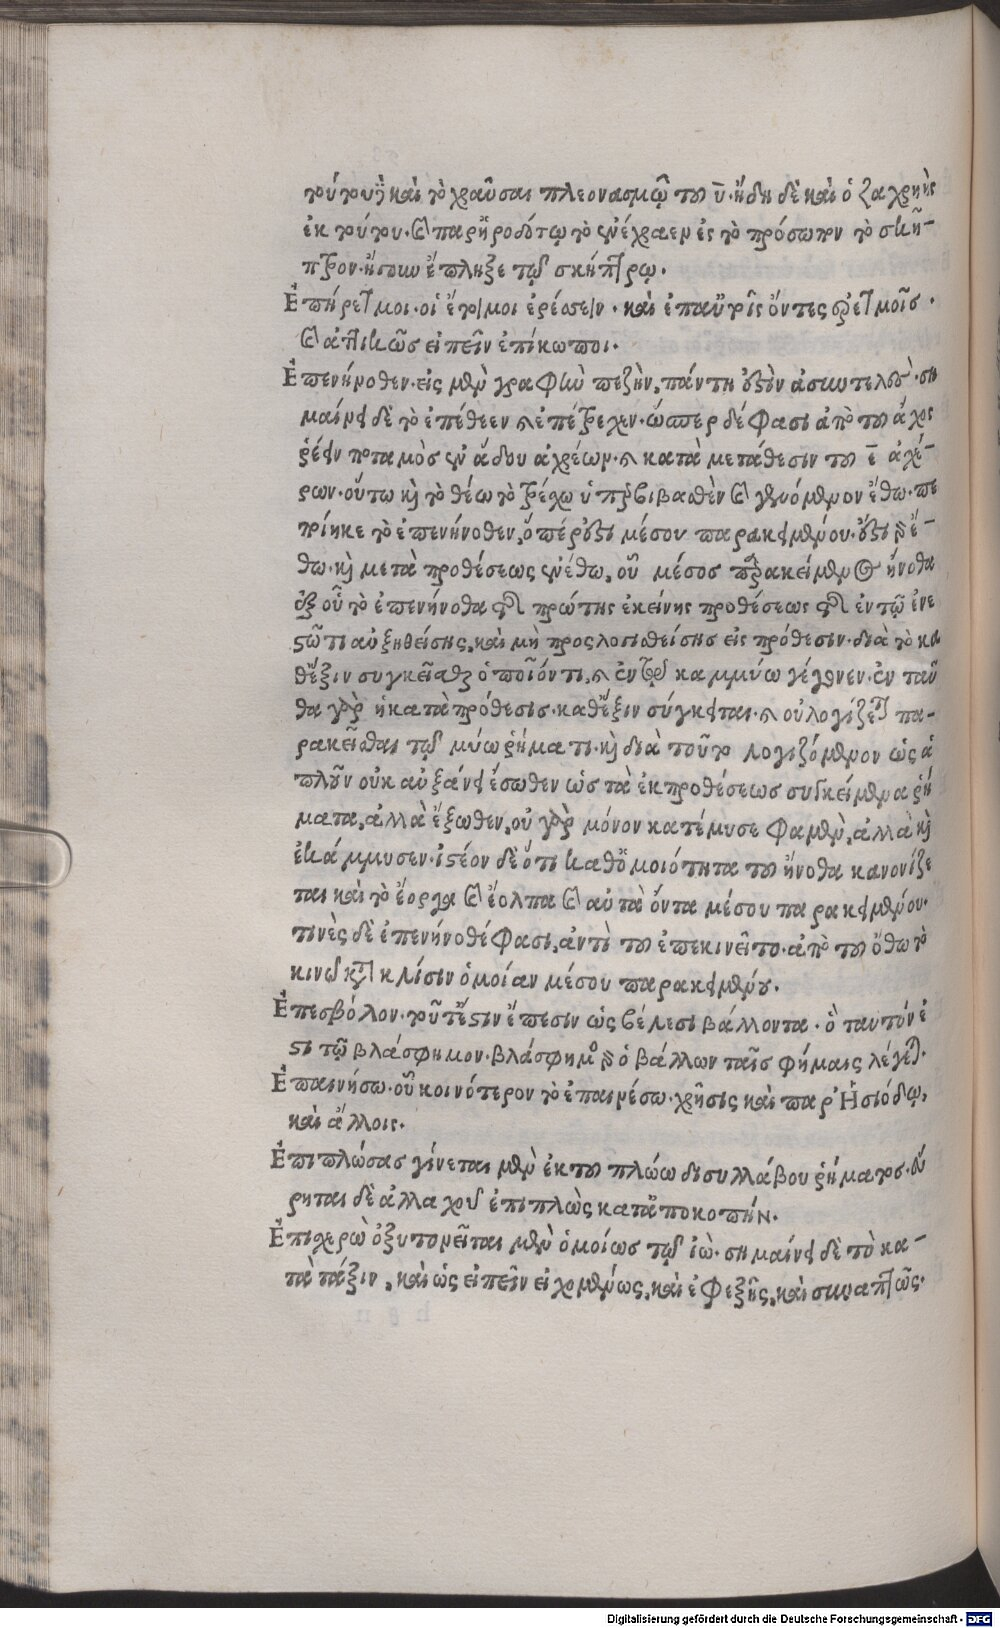 τούτου καὶ τὸ χραῦσαι πλεονασμῷ τοῦ ῡ· ἤδη δὲ καὶ ὁ ζαχρηὴς
ἐκ τούτου· καὶ παρ' ἡροδότῳ τὸ ἐνέχραεν ἐς τὸ πρόσωπον τὸ σκῆ-
πτρον· ἤγουν ἔπληξε τῷ σκήπτρῳ.
Ἐπήρετμοι· οἱ ἕτοιμοι ἐρέσσειν· καὶ ἐπαῦτοῖς ὄντες ἐρετμοῖς·
καὶ ἁπλικῶς εἰπεῖν ἐπίκωποι.
Ἐπενήνοθεν· εἰς μὲν γραφὴν πεζὴν, πάντη ἐστὶν ἀσυντελές· ση
μαίνει δὲ τὸ ἐπέθεεν καὶ ἐπέτρεχεν· ὥσπερ δέ φασι ἀπὸ τοῦ ἄχος
ῥέειν ποταμὸς ἐν ἅδου ἀχέων· καὶ κατὰ μετάθεσιν τοῦ ε̄ ἀχέ-
ρων· οὕτω καὶ τὸ θέω τὸ τρέχω ὑπερβιβασθὲν καὶ γενόμενον ἔθω· πε
ποίηκε τὸ ἐπενήνοθεν, ὅπέρ ἐστι μέσου παρακειμένου· ἔστι γὰρ ἔ-
θω· καὶ μετὰ προθέσεως ἐνέθω, οὗ μέσος παρακείμενος ἤνοθα
ἐξ οὗ τὸ ἐπενήνοθα τῆς πρώτης ἐκείνης προθέσεως τῆς ἐντῷ ἐνε
στῶτι αὐξηθείσης, καὶ μὴ προςλογισθείσης εἰς πρόθεσιν· διὰ τὸ κα
θέξιν συγκεῖσθαι ὁποῖόν τι, καὶ ἐν τῷ καμμύω γέγονεν· ἐν ταῦ
θα γὰρ ἡκατὰ πρόθεσις· καθέξιν σύγκειται· καὶ οὐλογίζεται πα-
ρακεῖσθαι τῷ μύω ῥήματι· καὶ διὰ τοῦτο λογιζόμενον ὡς ἁ
πλοῦν οὐκ αὐξάνει ἔσωθεν ὡς τὰ ἐκ προθέσεως συγκείμενα ῥή
ματα, ἀλλὰ ἔξωθεν, οὐ γὰρ μόνον κατέμυσε φαμὲν, ἀλλὰ καὶ
ἐκάμμυσεν· ἰστέον δὲ ὅτι καθ' ὁμοιότητα τοῦ ἤνοθα κανονίζε
ται καὶ τὸ ἔοργα καὶ ἔολπα καὶ αὐτὰ ὄντα μέσου παρακειμένου·
τινὲς δὲ ἐπενήνοθέ φασι, ἀντὶ τοῦ ἐπεκινεῖτο· ἀπὸ τοῦ ὄθω τὸ
κινῶ κατὰ κλίσιν ὁμοίαν μέσου παρακειμένου.
Ἐπεσβόλον· τοῦτέστιν ἔπεσιν ὡς βέλεσι βάλλοντα· ὃ ταυτόν ἐ
στι τῷ βλάσφημον· βλάσφημος γὰρ ὁ βάλλων ταῖς φήμαις λέγεται·
Ἐπαινήσω· οὗ κοινότερον τὸ ἐπαινέσω· χρῆσις καὶ παρ' Ἡσιόδῳ,
καὶ ἄλλοις.
Ἐπιπλώσας γίνεται μὲν ἐκ τοῦ πλώω δισυλλάβου ῥήματος· εὕ
ρηται δὲ ἀλλαχοῦ ἐπιπλὼς κατἀποκοπήν.
Ἐπισχερὼ ὀξυτονεῖται μὲν ὁμοίως τῷ ἰώ· σημαίνει δὲ τὸ κα-
τὰ τάξιν, καὶ ὡς εἰπεῖν εἰχομένως, καὶ ἐφεξῆς, καὶ συναπτῶς·
Digitalisierung gefördert durch die Deutsche Forschungsgemeinschaft - DFG